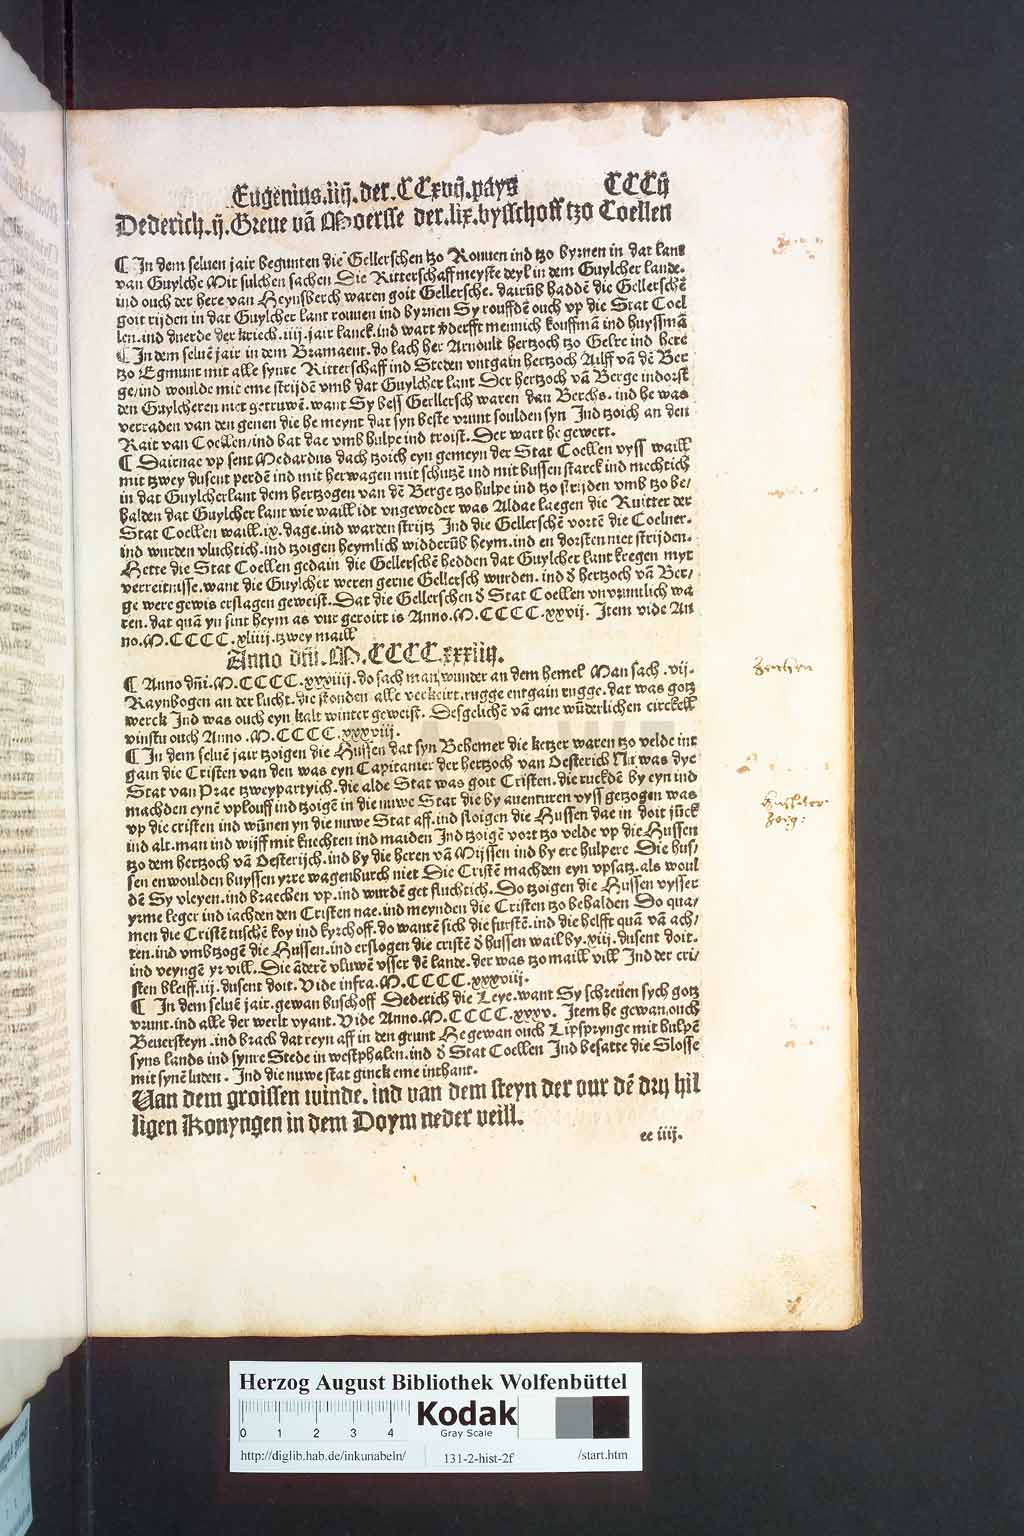 Eugenius.iiij.der.CCxvij.pays CCCij
Dederich.ij.Greue vā Moersse der.lix.bysschoff tzo Coellen
¶ In dem seluen jair begunten die Gellerschen tzo Rouuen ind tzo byrnen in dat lant
van Guylche Mit sulchen sachen Die Ritterschaff meyste deyl in dem Guylcher lande.
ind ouch der here van Heynsberch waren goit Gellersche. dairūb haddē die Gellerschē
goit rijden in dat Guylcher lant rouuen ind byrnen Sy rouffdē ouch vp die Stat Coel
len.ind duerde der kriech.iiij.jair lanck.ind wart vderfft mennich kouffmā ind huyssmā
¶ In dem seluē jair in dem Bramaent.do lach her Arnoult hertzoch tzo Gelre ind here
tzo Egmunt mit alle synre Ritterschaff ind Steden vntgain hertzoch Ailff vā dē Ber
ge/ind woulde mit eme strijdē vmb dat Guylcher lant Der hertzoch vā Berge indorst
den Guylcheren niet getruwē.want Sy bess Gerllersch waren dan Berchs. ind he was
verraden van den genen die he meynt dat syn beste vrunt soulden syn Ind tzoich an den
Rait van Coellen/ind bat dae vmb hulpe ind troist.Der wart he gewert.
¶ Dairnae vp sent Medardus dach tzoich eyn gemeyn der Stat Coellen vyss waill
mit tzwey dusent perdē ind mit herwagen mit schutzē ind mit bussen starck ind mechtich
in dat Guylcherlant dem hertzogen van dē Berge tzo hulpe ind tzo strijden vmb tzo be/
halden dat Guylcher lant wie waill idt vngeweder was Aldae laegen die Ruitter der
Stat Coellen waill.ix.dage.ind warden strijtz Ind die Gellerschē vortē die Coelner.
ind wurden vluchtich.ind tzoigen heymlich widderūb heym.ind en dorsten niet strijden.
Hette die Stat Coellen gedain die Gellerschē hedden dat Guylcher lant kregen myt
verreitnisse.want die Guylcher weren gerne Gellersch wurden.ind d hertzoch vā Ber/
ge were gewis erslagen geweist.Dat die Gellerschen d Stat Coellen vnvrntlich wa
ren.dat quā yn sint heym as vur geroirt is Anno.M.CCCC.xxvij. Item vide An
no.M.CCCC.xliiij.tzwey maill
Anno dñi.M.CCCC.xxxiiij.
¶ Anno dñi.M.CCCC.xxxiiij.do sach man wunder an dem hemel Man sach .vij.
Raynbogen an der lucht.die stonden alle verkeirt.rugge entgain rugge.dat was gotz
werck Ind was ouch eyn kalt winter geweist. Desgelichē vā eme wūderlichen circkell
vinstu ouch Anno .M.CCCC.xxxviij.
¶ In dem seluē jair tzoigen die Hussen dat syn Behemer die ketzer waren tzo velde int
gain die Cristen van den was eyn Capitanier der hertzoch van Oesterich Nu was dye
Stat van Prae tzweypartyich.die alde Stat was goit Cristen.die ruckdē by eyn ind
machden eynē vplouff ind tzoigē in die nuwe Stat die by auenturen vyss getzogen was
vp die cristen ind wūnen yn die nuwe Stat aff.ind sloigen die Hussen dae in doit jūck
ind alt.man ind wijff mit knechten ind maiden Ind tzoigē vort tzo velde vp die Hussen
tzo dem hertzoch vā Oesterijch.ind by die heren vā Mijssen ind by ere hulpere Die hus/
sen enwoulden buyssen yrre wagenburch niet Die Cristē machden eyn vpsatz.als woul
dē Sy vleyen.ind braechen vp.ind wurdē get fluchtich.Do tzoigen die Hussen vysser
yrme leger ind iachden den Cristen nae.ind meynden die Cristen tzo behalden Do qua/
men die Cristē tuschē koy ind kyrchoff.do wantē sich die furstē.ind die helfft quā vā ach/
ten.ind vmbtzogē die Hussen.ind erslogen die cristē d hussen wail by.xiij.dusent doit.
ind veyngē yr vill.Die āderē vluwē vsser dē lande.der was tzo maill vill Ind der cri/
sten bleiff.iij.dusent doit.Vide infra.M.CCCC.xxxviij.
¶ In dem seluē jair.gewan buschoff Dederich die Leye.want Sy schreuen sych gotz
vrunt.ind alle der werlt vyant.Vide Anno.M.CCCC.xxxv. Item he gewan.ouch
Beuersteyn.ind brach dat reyn aff in den grunt He gewan ouch Lipsprynge mit hulpē
syns lands ind synre Stede in westphalen.ind d Stat Coellen Ind besatte die Slosse
mit synē luden. Ind die nuwe stat ginck eme inthant.
Uan dem groissen winde.ind van dem steyn der vur dē drij hil
ligen Konyngen in dem Doym neder veill.
ee iiij.
Herzog August Bibliothek Wolfenbüttel
0 1 2 3 4
Kodak
Gray Scale
http://diglib.hab.de/inkunabeln/ 131-2-hist-2f /start.htm